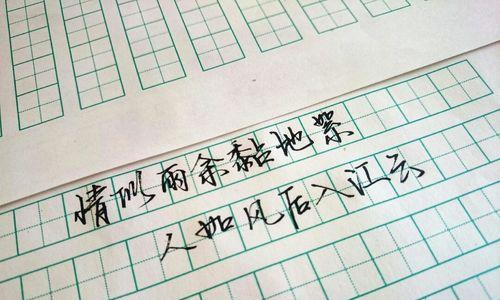 情似雨余黏地絮
人如风后入江云